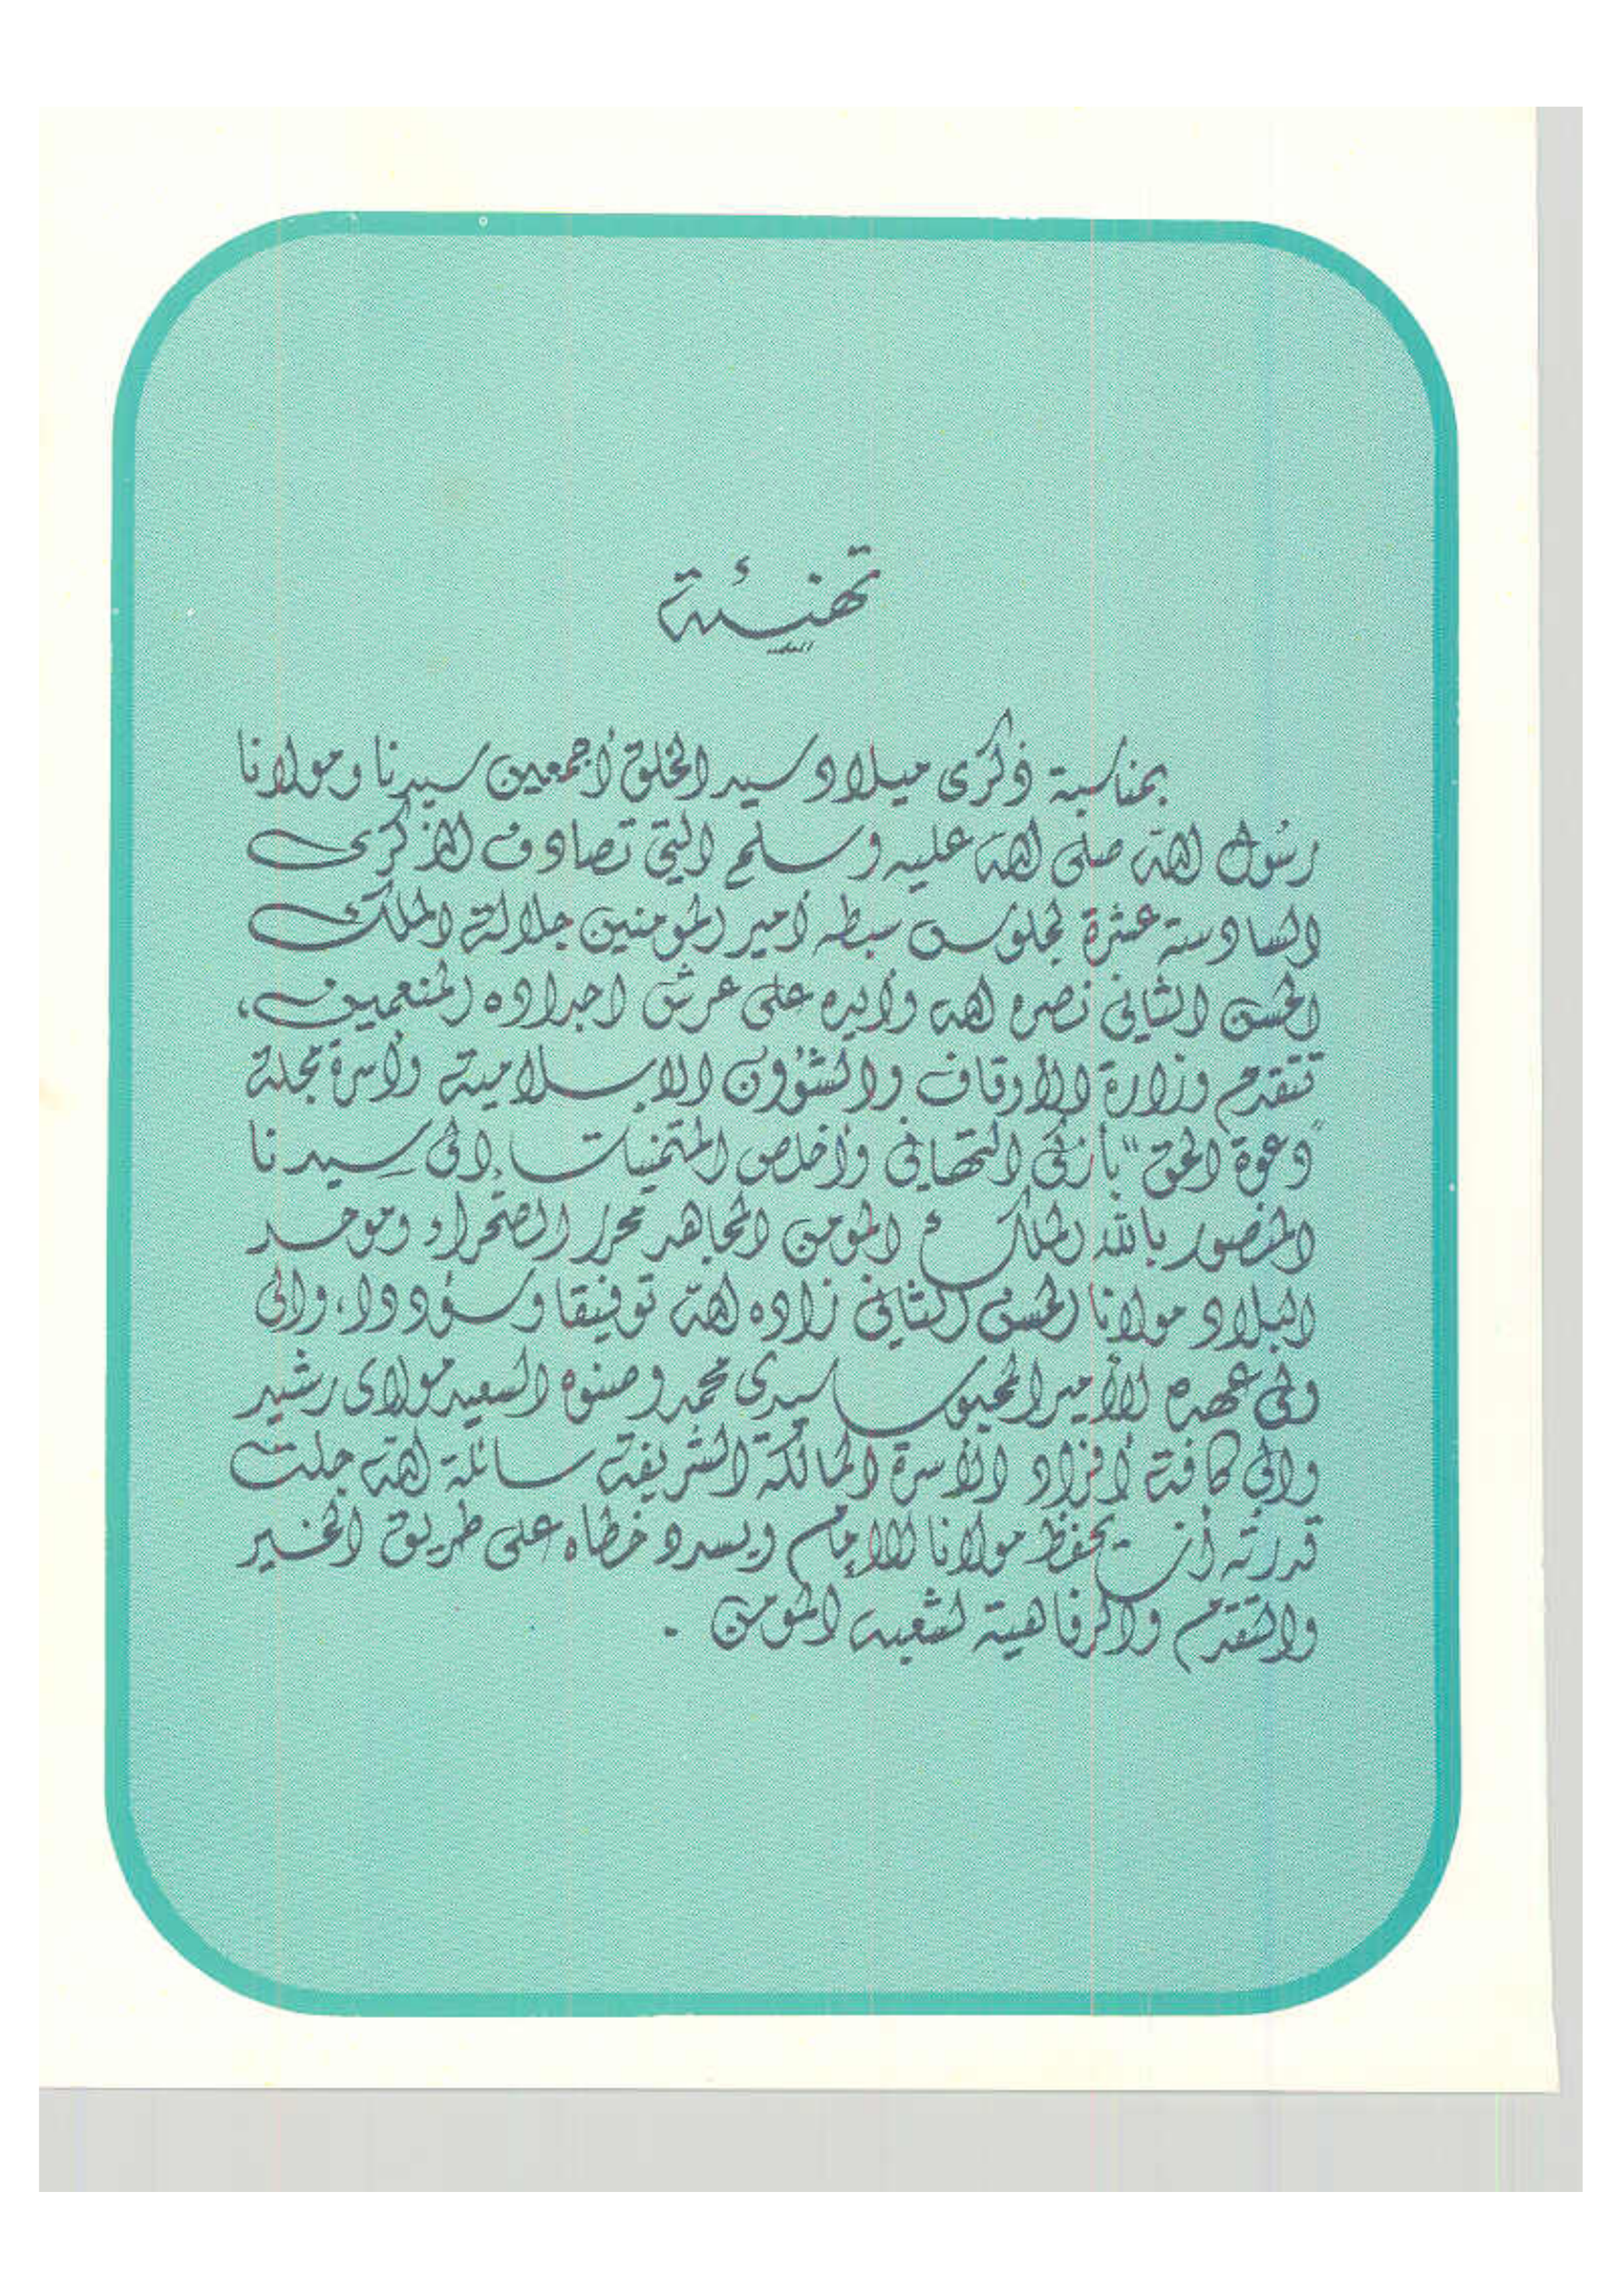 تهنيئة
بمناسبة ذكرى ميلاد سيد الخلق أجمعين سيدنا ومولانا
رسول الله صلى الله عليه وسلم التي تصادف الذكرى
السادسة عشرة لجلوس سبطه أمير المومنين جلالة الملك
الحسن الثاني نصره الله وأيده على عرش اجداده المنعمين،
تتقدم وزارة الأوقاف والشؤون الاسلامية وأسرة مجلة
"دعوة الحق" بأزكى التهاني وأخلص المتمنيات إلى سيدنا
المنصور بالله الملك المومن المجاهد محرر الصحراء وموحد
البلاد مولانا الحسن الثاني زاده الله توفيقا وسؤددا، والى
ولي عهده الأمير المحبوب سيدي محمد وصنوه السعيد مولاي رشيد
والى كافة أفراد الأسرة المالكة الشريفة سائلة الله جلت
قدرته أن يحفظ مولانا الإمام ويسدد خطاه على طريق الخير
والتقدم والرفاهية لشعبه المومن .